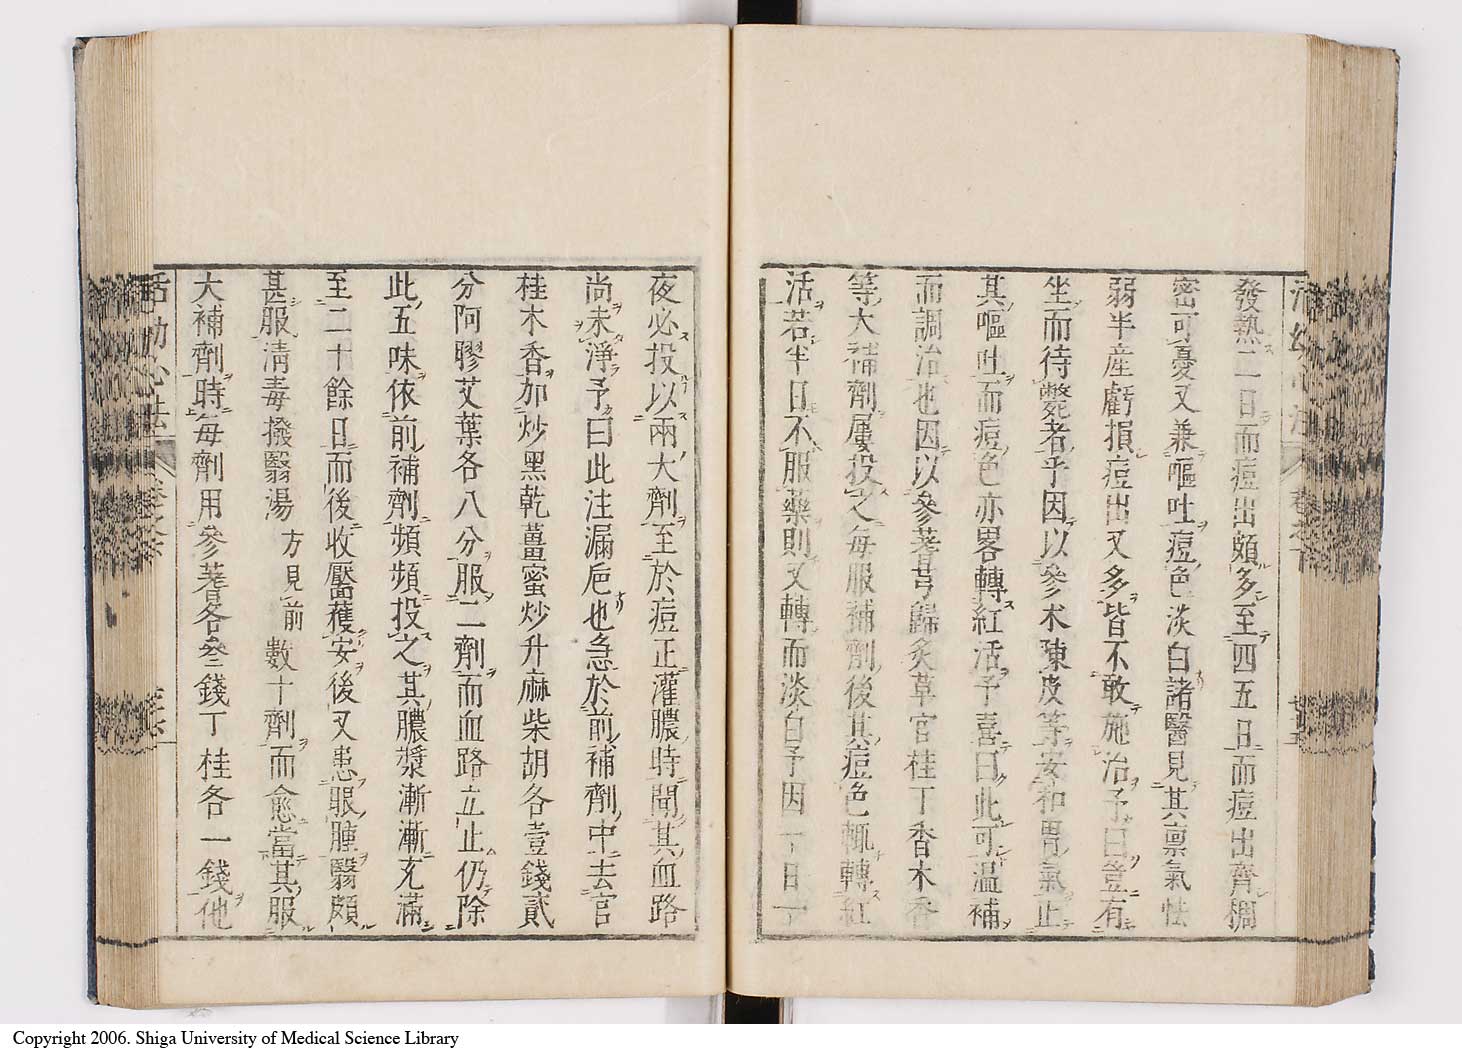 發熱二日而痘出頗多至四五日而痘出齊稠
密可憂又兼嘔吐痘色淡白諸醫見其禀氣怯
弱半産虧損痘出又多皆不敢施治予曰豈有
坐而待斃者乎因以參朮陳皮等安和胃氣止
其嘔吐而痘色亦畧轉紅活予喜曰此可温補
而調治也因以參蓍芎歸炙草官桂丁香木香
等大補劑屢投之每服補劑後其痘色輒轉紅
活若半日不服藥則又轉而淡白予因一日一
夜必投以兩大劑至於痘正灌膿時聞其血路
尚未淨予曰此注漏巵也急於前補劑中去官
桂木香加炒黑乾薑蜜炒升麻柴胡各壹錢貳
分阿膠艾葉各八分服二劑而血路立止仍除
此五味依前補劑頻頻投之其膿漿漸漸充滿
至二十餘日而後收靨獲安後又患眼腫翳頗
甚服清毒撥翳湯方見前數十劑而愈當其服
大補劑時每劑用參蓍各叁錢丁桂各一錢他
活幼心法 卷之下
Copyright 2006. Shiga University of Medical Science Library